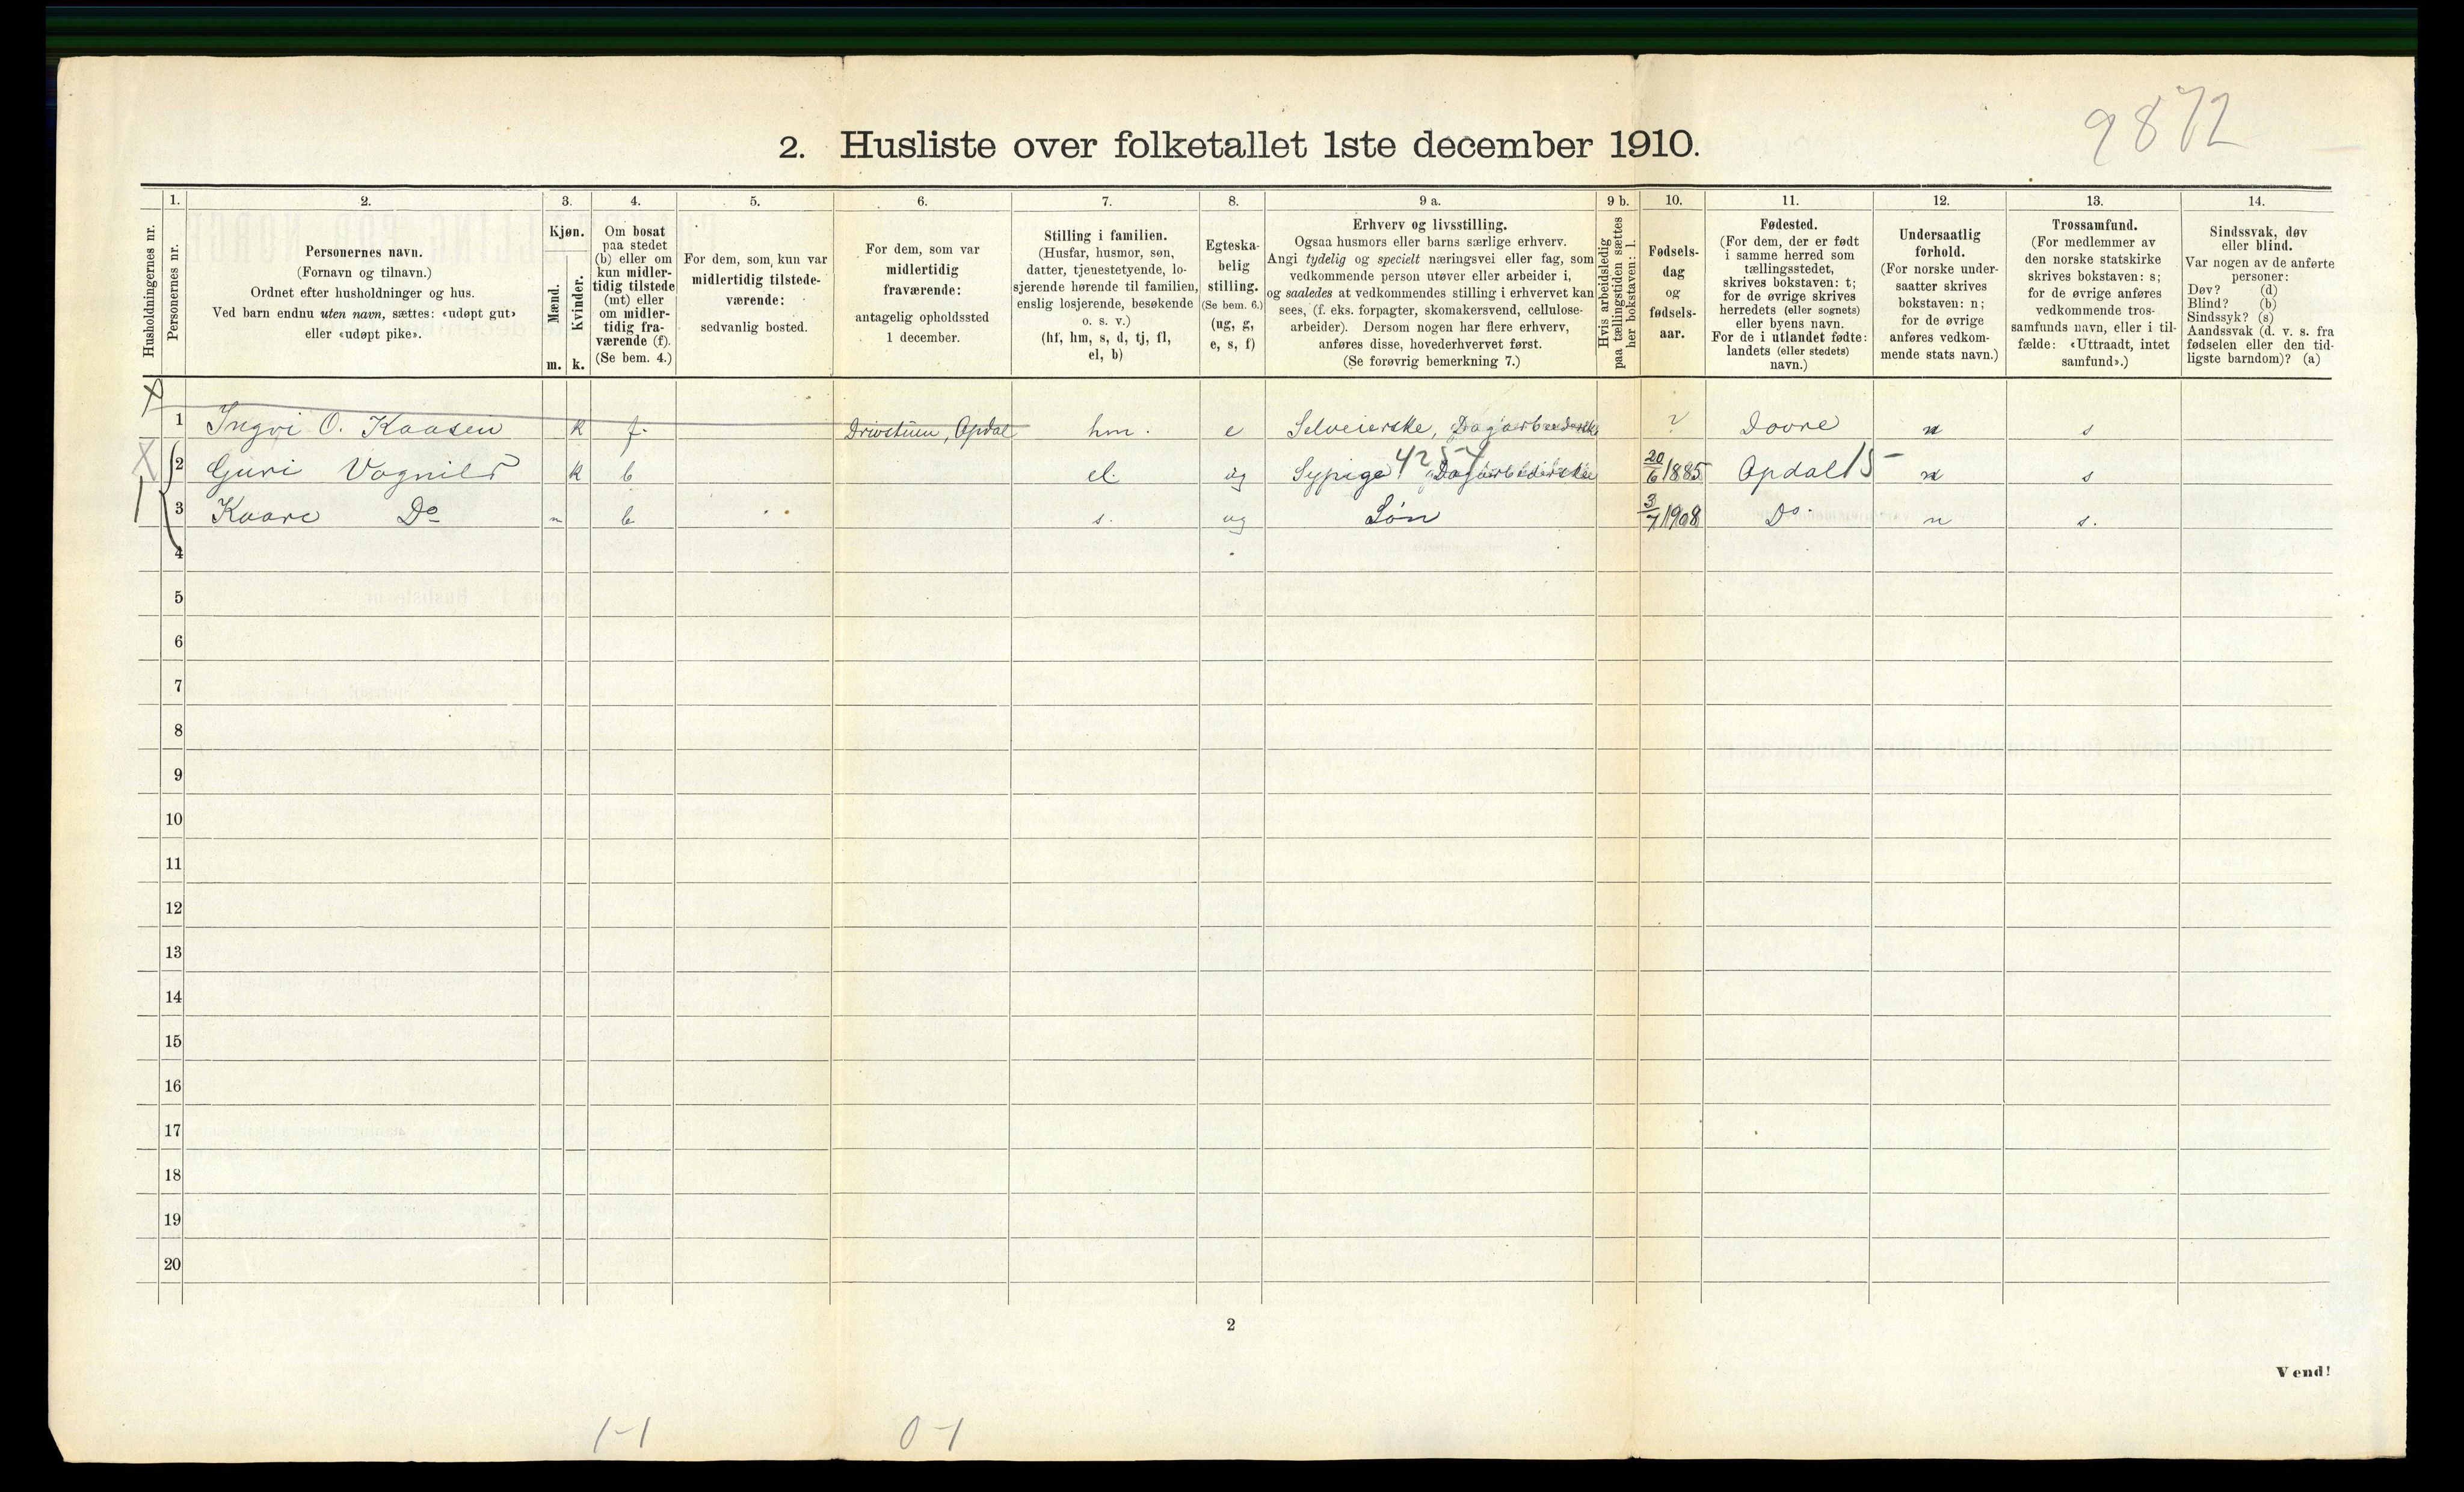 9872
2. Husliste over folketallet 1ste december 1910.
1. 2. 3. 4. 5. 6. 7. 8. 9 a. 9 b. 10. 11. 12. 13. 14.
Husholdningernes nr.
Personernes nr.
Personernes navn.
(Fornavn og tilnavn.)
Ordnet efter husholdninger og hus.
Ved barn endnu uten navn, sættes: «udøpt gut»
eller «udøpt pike».
Kjøn.
Mænd.
Kvinder.
m. k.
Om bosat
paa stedet
(b) eller om
kun midler-
tidig tilstede
(mt) eller
om midler-
tidig fra-
værende (f).
(Se bem. 4.)
For dem, som kun var
midlertidig tilstede-
værende:
sedvanlig bosted.
For dem, som var
midlertidig
fraværende:
antagelig opholdssted
1 december.
Stilling i familien.
(Husfar, husmor, søn,
datter, tjenestetyende, lo-
sjerende hørende til familien,
enslig losjerende, besøkende
o. s. v.)
(hf, hm, s, d, tj, fl,
el, b)
Egteska-
belig
stilling.
(Se bem. 6.)
(ug, g,
e, s, f)
Erhverv og livsstilling.
Ogsaa husmors eller barns særlige erhverv.
Angi tydelig og specielt næringsvei eller fag, som
vedkommende person utøver eller arbeider i,
og saaledes at vedkommendes stilling i erhvervet kan
sees, (f. eks. forpagter, skomakersvend, cellulose-
arbeider). Dersom nogen har flere erhverv,
anføres disse, hovederhvervet først.
(Se forøvrig bemerkning 7.)
Hvis arbeidsledig
paa tællingstiden sættes
her bokstaven: l.
Fødsels-
dag
og
fødsels-
aar.
Fødested.
(For dem, der er født
i samme herred som
tællingsstedet,
skrives bokstaven: t;
for de øvrige skrives
herredets (eller sognets)
eller byens navn.
For de i utlandet fødte:
landets (eller stedets)
navn.)
Undersaatlig
forhold.
(For norske under-
saatter skrives
bokstaven: n;
for de øvrige
anføres vedkom-
mende stats navn.)
Trossamfund.
(For medlemmer av
den norske statskirke
skrives bokstaven: s;
for de øvrige anføres
vedkommende tros-
samfunds navn, eller i til-
fælde: «Uttraadt, intet
samfund».)
Sindssvak, døv
eller blind.
Var nogen av de anførte
personer:
Døv? (d)
Blind? (b)
Sindssyk? (s)
Aandssvak (d. v. s. fra
fødselen eller den tid-
ligste barndom)? (a)
X 1 Ingri O. Kaasen k f. Drivstuen, Opdal hm. e Selveierske, Dagarbeiderske ? Dovre n s
X 2 Guri Vognild k b el. ug Sypige 4254 Dagarbeiderske 20/6 1885 Opdal 15 n s
3 Kaare Do m b s. ug Søn 3/7 1908 Do. n s.
4
5
6
7
8
9
10
11
12
13
14
15
16
17
18
19
20
2
Vend!
1-1 0-1